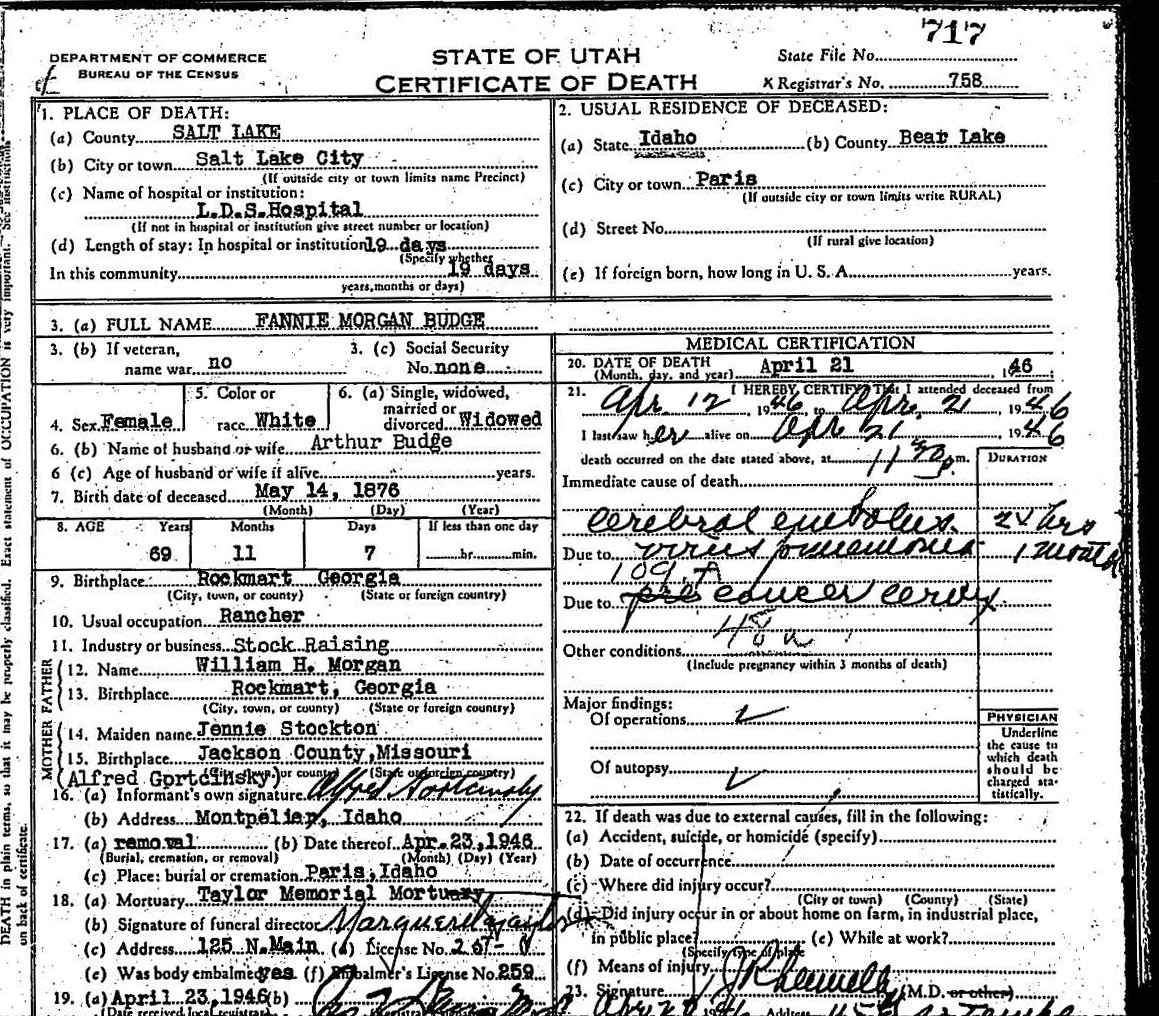 717
DEPARTMENT OF COMMERCE
BUREAU OF THE CENSUS
STATE OF UTAH
CERTIFICATE OF DEATH
State File No.
x Registrar's No. 758
1. PLACE OF DEATH:
(a) County SALT LAKE
(b) City or town Salt Lake City
(If outside city or town limits name Precinct)
(c) Name of hospital or institution:
L.D.S.Hospital
(If not in hospital or institution give street number or location)
(d) Length of stay: In hospital or institution 19 days
(Specify whether
In this community 19 days
years, months or days)
2. USUAL RESIDENCE OF DECEASED:
(a) State Idaho (b) County Bear Lake
(c) City or town Paris
(If outside city or town limits write RURAL)
(d) Street No.
(If rural give location)
(e) If foreign born, how long in U. S. A. years.
3. (a) FULL NAME FANNIE MORGAN BUDGE
3. (b) If veteran, name war no
3. (c) Social Security No. none
4. Sex Female
5. Color or race White
6. (a) Single, widowed, married or divorced Widowed
6. (b) Name of husband or wife Arthur Budge
6 (c) Age of husband or wife if alive years.
7. Birth date of deceased May 14, 1876
(Month) (Day) (Year)
8. AGE Years Months Days If less than one day
69 11 7 hr. min.
9. Birthplace Rockmart Georgia
(City, town, or county) (State or foreign country)
10. Usual occupation Rancher
11. Industry or business Stock Raising
FATHER
12. Name William H. Morgan
13. Birthplace Rockmart, Georgia
(City, town, or county) (State or foreign country)
MOTHER
14. Maiden name Jennie Stockton
15. Birthplace Jackson County, Missouri
(City, town, or county) (State or foreign country)
(Alfred Gortcinsky)
16. (a) Informant's own signature Alfred Gortcinsky
(b) Address Montpelier, Idaho
17. (a) removal (b) Date thereof Apr. 23, 1946
(Burial, cremation, or removal) (Month) (Day) (Year)
(c) Place: burial or cremation Paris, Idaho
18. (a) Mortuary Taylor Memorial Mortuary
(b) Signature of funeral director Marguerite Taylor
(c) Address 125 N.Main (d) License No. 267
(e) Was body embalmed yes (f) Embalmer's License No. 259
19. (a) April 23, 1946 (b)
(Date received local registrar)
MEDICAL CERTIFICATION
20. DATE OF DEATH April 21, 1946
(Month, day, and year)
21. I HEREBY CERTIFY That I attended deceased from
Apr. 12, 1946 to Apr. 21, 1946
I last saw her alive on Apr 21 1946
death occurred on the date stated above, at 11 30 p m.
DURATION
Immediate cause of death
cerebral embolus 24 hrs
Due to virus pneumonia 1 month
109.A
Due to pre cancer cervix
48
Other conditions
(Include pregnancy within 3 months of death)
Major findings:
Of operations
Of autopsy
PHYSICIAN
Underline
the cause to
which death
should be
charged sta-
tistically.
22. If death was due to external causes, fill in the following:
(a) Accident, suicide, or homicide (specify)
(b) Date of occurrence
(c) Where did injury occur?
(City or town) (County) (State)
(d) Did injury occur in or about home on farm, in industrial place,
in public place? (e) While at work?
(Specify type of place)
(f) Means of injury
23. Signature (M.D. or other)
Address
DEATH in plain terms, so that it may be properly classified. Exact statement of OCCUPATION is very important. See instructions
on back of certificate.